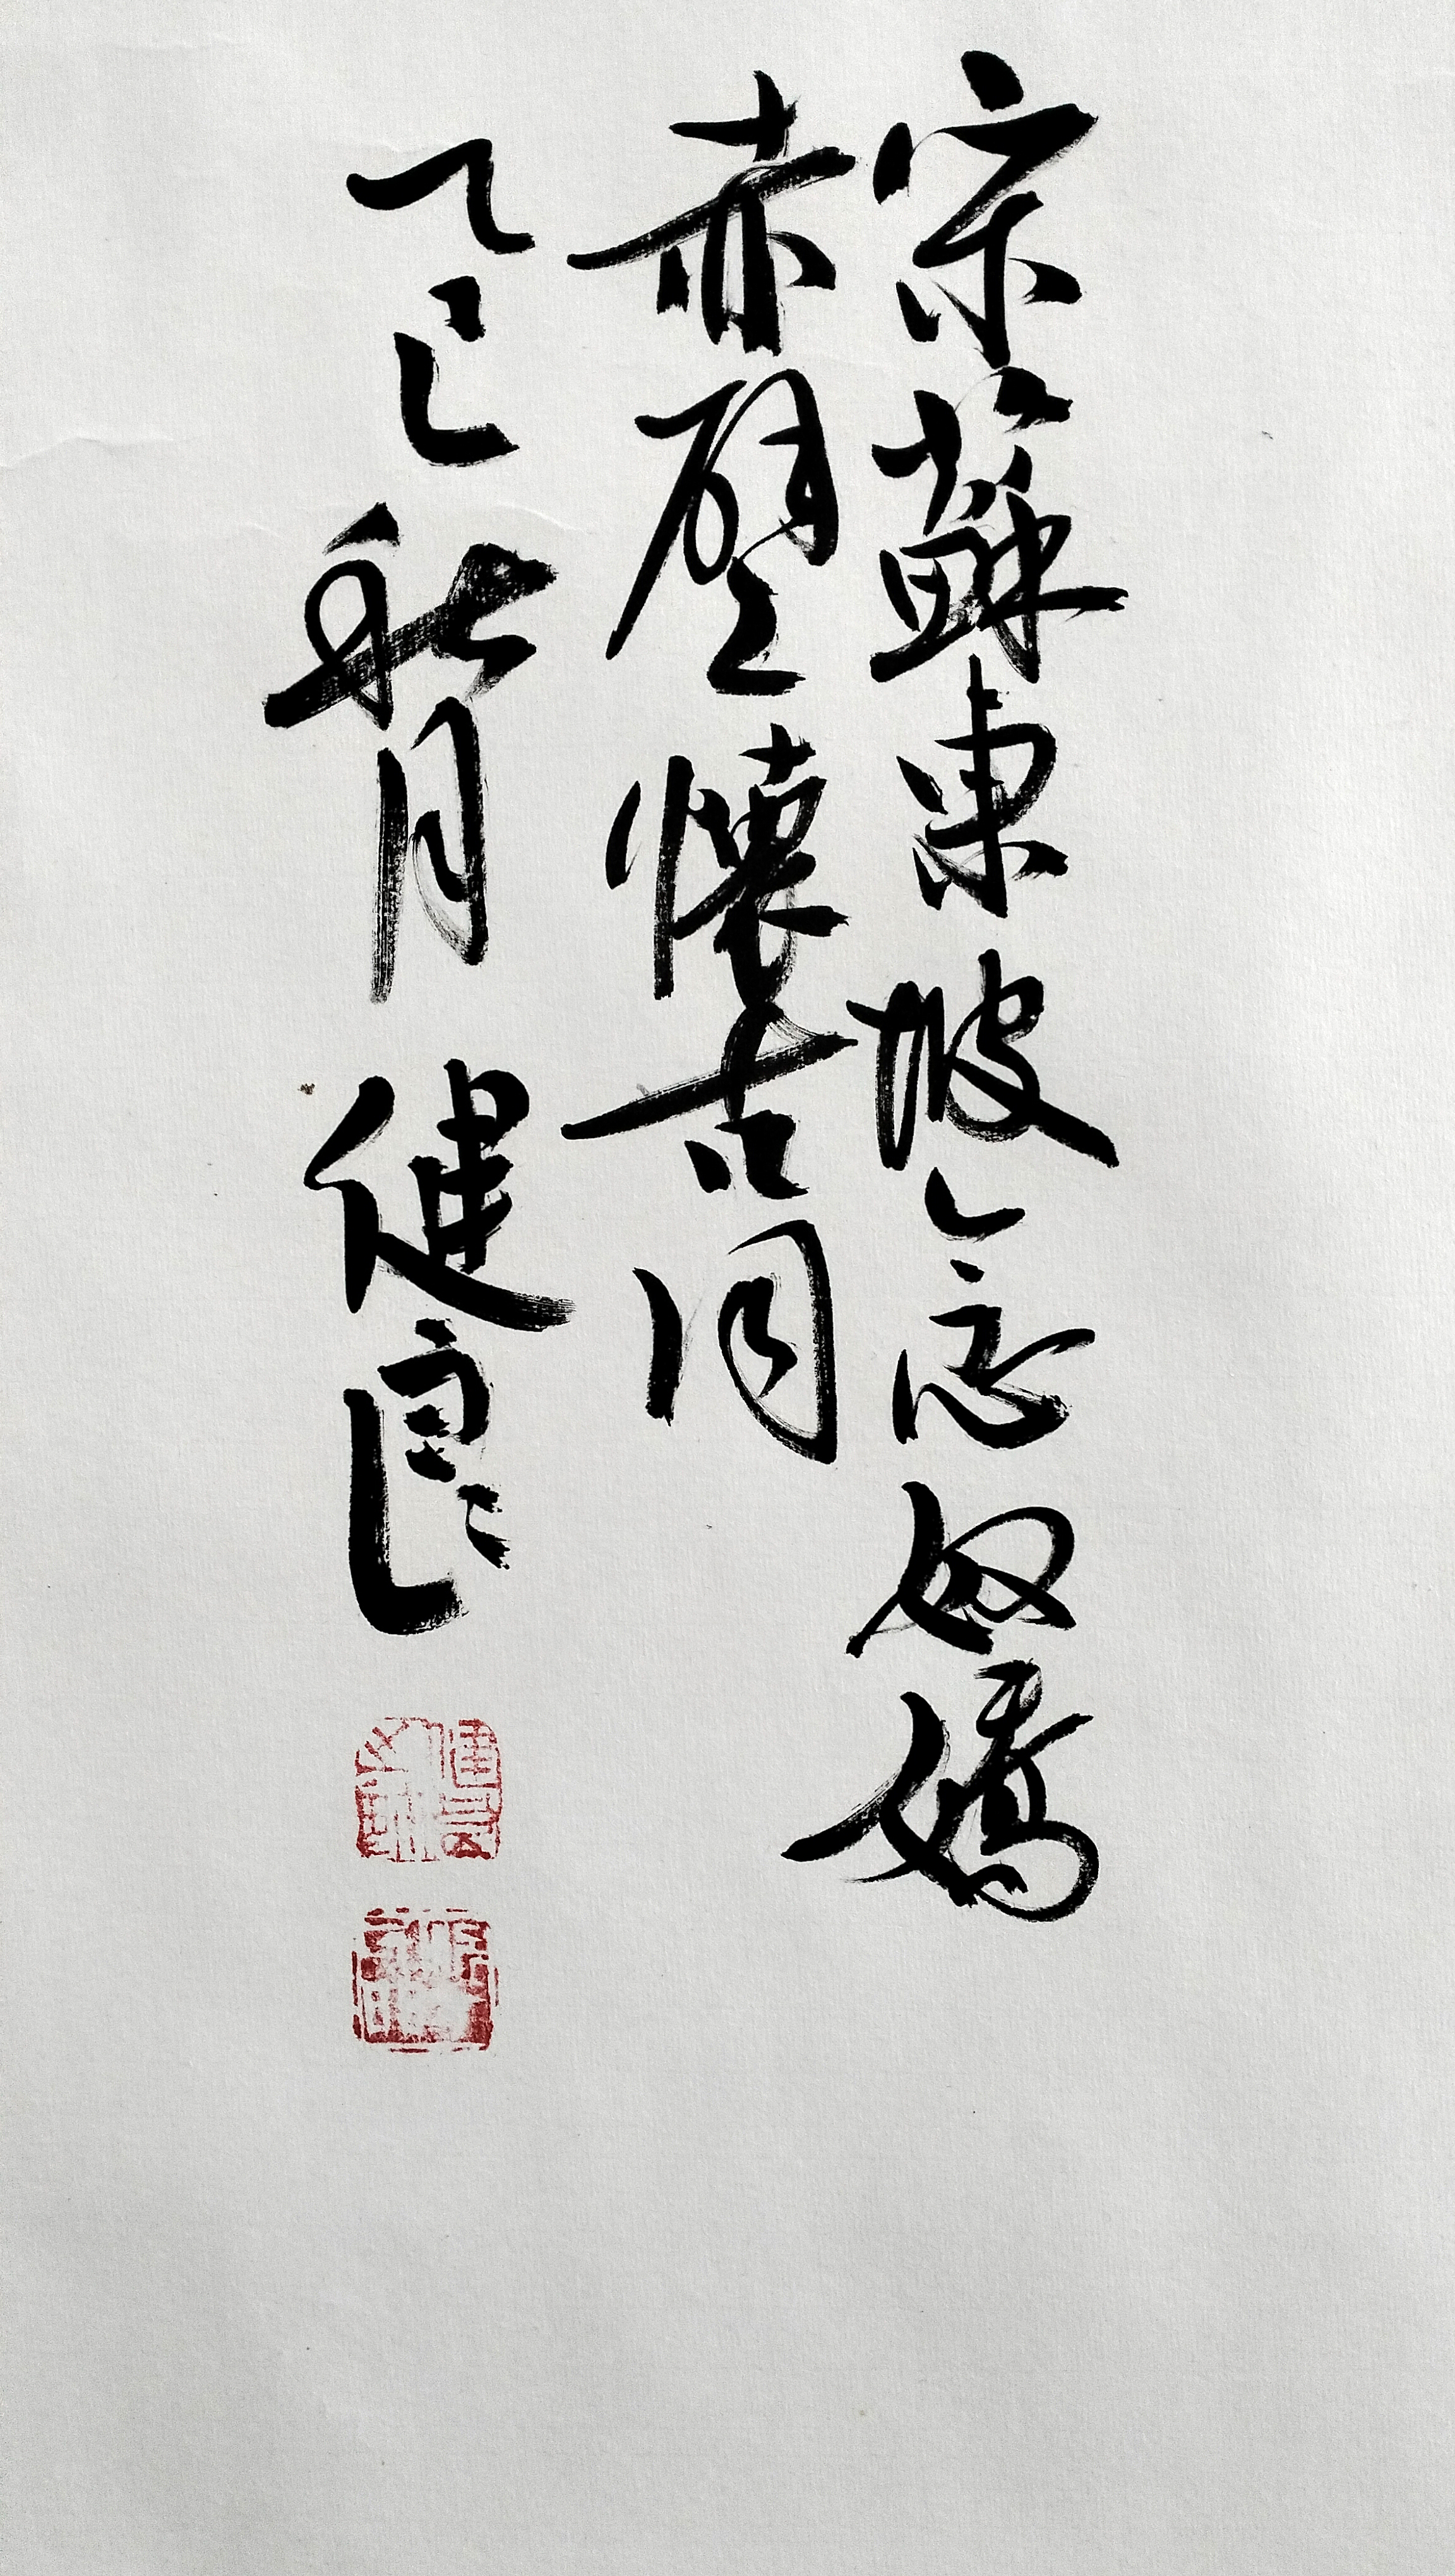 宋蘇東坡念奴嬌
赤壁懷古詞
乙巳秋月 健良